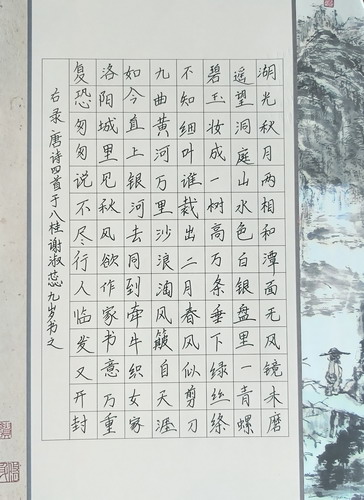 湖光秋月两相和潭面无风镜未磨
遥望洞庭山水色白银盘里一青螺
碧玉妆成一树高万条垂下绿丝绦
不知细叶谁裁出二月春风似剪刀
九曲黄河万里沙浪淘风簸自天涯
如今直上银河去同到牵牛织女家
洛阳城里见秋风欲作家书意万重
复恐匆匆说不尽行人临发又开封
右录唐诗四首于八桂谢淑蕊九岁书之